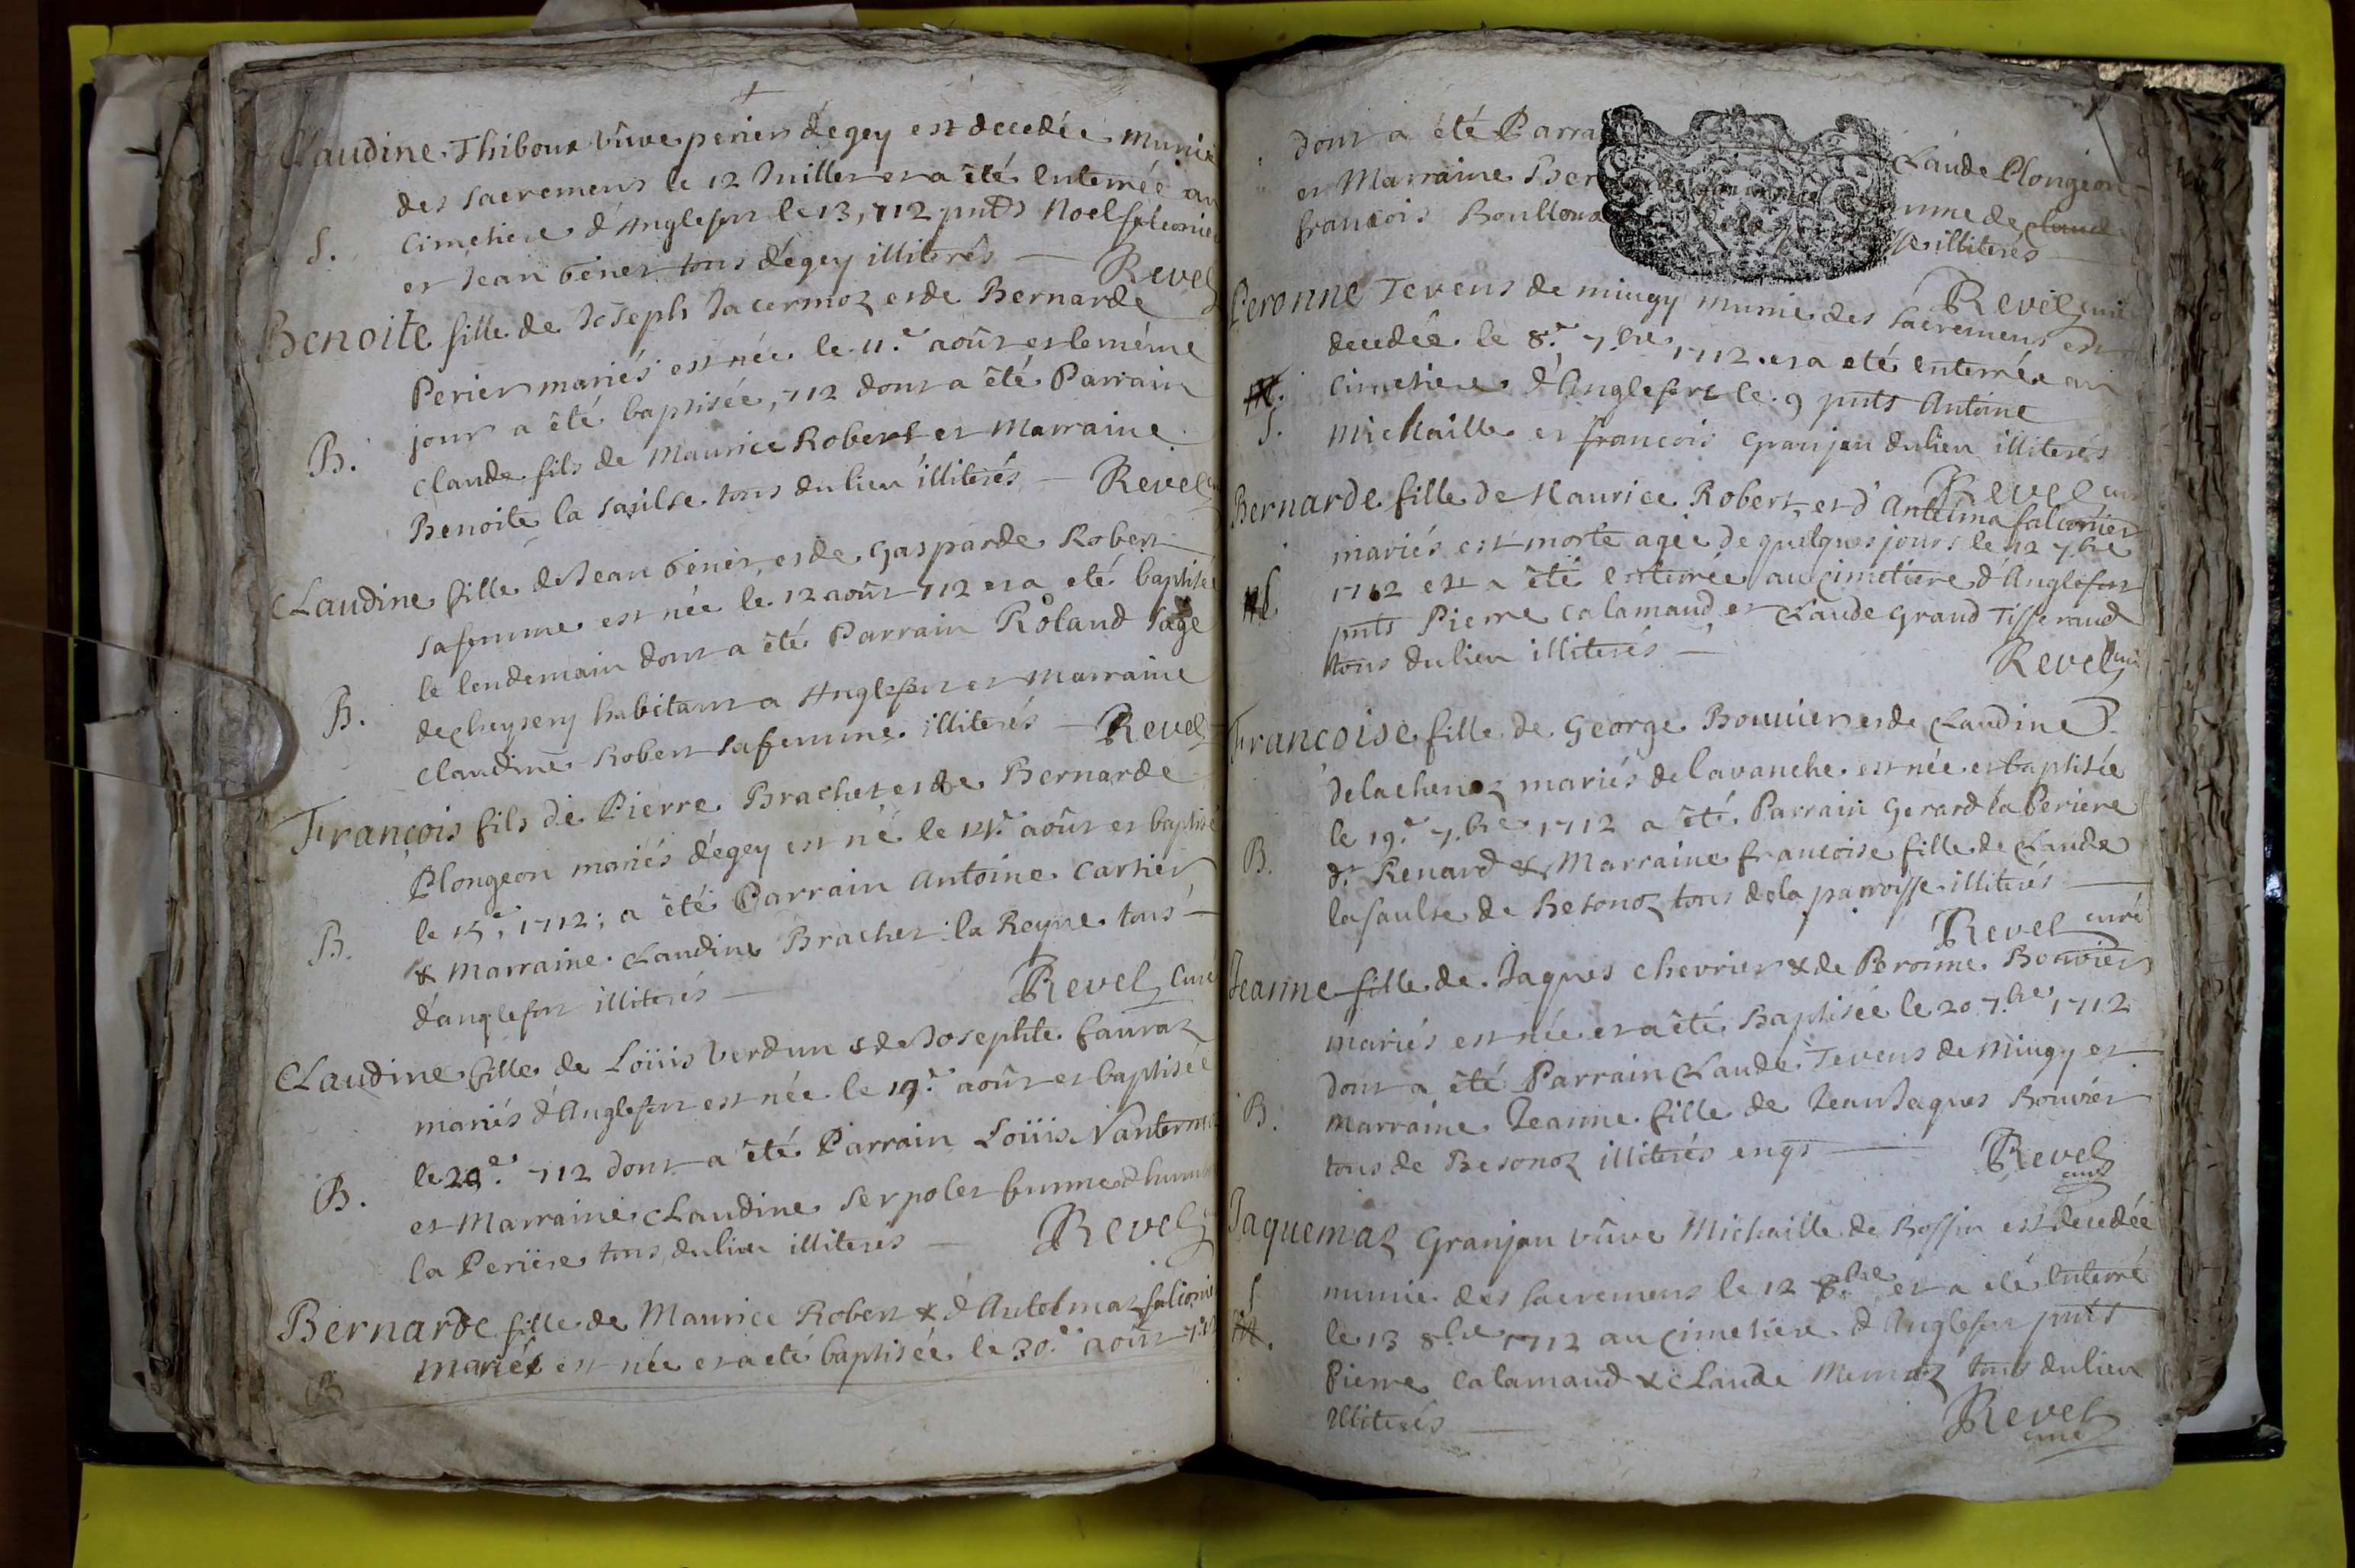 Claudine Thiboux vûve perier dégey est decedée munie
des sacremens le 12 Juillet et a été enterrée au
S. Cimetiere d'Anglefort le 13, 712 pnts Noel falconier
et Jean Génet tous dégey illiterés — Revel
Benoite fille de Joseph Jacermoz et de Bernarde
Perier mariés est née le 11.e août et le méme
jour a été baptisée, 712 dont a été Parrain
B. Claude fils de Maurice Robert et Marraine
Benoite la saulse tous du lieu illiterés — Revel
Claudine fille de Jean Génet et de Gasparde Robert
sa femme est née le 12 août 712 et a eté baptisée
le lendemain dont a été Parrain Roland Sage
B. de cheysery habitant a Anglefort et Marraine
Claudine Robert sa femme illiterés — Revel
François fils de Pierre Brachet et de Bernarde
Plongeon mariés dégey est né le 14.e août et baptisé
le 15, 1712; a été Parrain Antoine Cartier
B. & Marraine Claudine Brachet la Reyne tous
d'anglefort illiterés — Revel Curé
Claudine fille de Loüis Verdun & de Josephte fauraz
mariés d'Anglefort est née le 19.e août et baptisée
le 20.e 712 dont a été Parrain Loüis
B. et Marraine Claudine Serpolet femme
la Periere tous du lieu illiterés — Revel
Bernarde fille de Maurice Robert & d'Antelmaz falconier
mariés est née et a eté baptisée le 30.e août 712
B
dont a été Parra Claude Plongeon
et Marraine Ber femme de claude
françois Boulloux illiterés —
Revel curé
Peronne Tevens de mingy munie des sacremens est
decedée le 8.e 7.bre 1712 et a eté enterrée au
cimetiere d'Anglefort le 9 pnts Antoine
S. Michaille et françois Granjan du lieu illiterés
Revel curé
Bernarde fille de Maurice Robert et d'Antelma falconier
mariés est morte agée de quelques jours le 12 7.bre
S. 1712 et a été enterrée au cimetiere d'Anglefort
pnts Pierre Calamand et Claude Grand Tisserand
tous du lieu illiterés —
Revel curé
Françoise fille de George Bouvier et de Claudine
delachenoz mariés de lavanche est née et baptisée
le 19.e 7.bre 1712 a été Parrain Gerard la Periere
B. dt Renard & Marraine francoise fille de Claude
la saulse de Besonoz tous de la parroisse illiterés —
Revel curé
Jeanne fille de Jaques Chevrier & de Peronne Bouvier
mariés est née et a été Baptisée le 20 7.bre 1712
dont a été Parrain Claude Tevens de Mingy et
B. Marraine Jeanne fille de Jean Jaques Bouvier
tous de Besonoz illiterés enqs —
Revel curé
Jaquemaz Granjan vûve Michaille de Bossin est decedée
S munie des sacremens le 12 8.bre et a eté enterré
le 13 8.bre 1712 au cimetiere d'Anglefort pnts
Pierre Calamand & Claude Mermoz tous du lieu
illiterés —
Revel curé